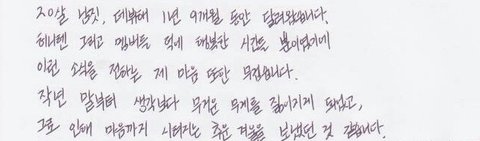 20살 남짓, 데뷔해 1년 9개월 동안 달려왔습니다.
허니텐 그리고 멤버들 덕에 행복한 시간들 뿐이었기에
이런 소식을 전하는 제 마음 또한 무겁습니다.
작년 말부터 생각보다 무거운 무게를 짊어지게 되었고,
그로 인해 마음까지 시려지는 추운 겨울을 보냈던 것 같습니다.